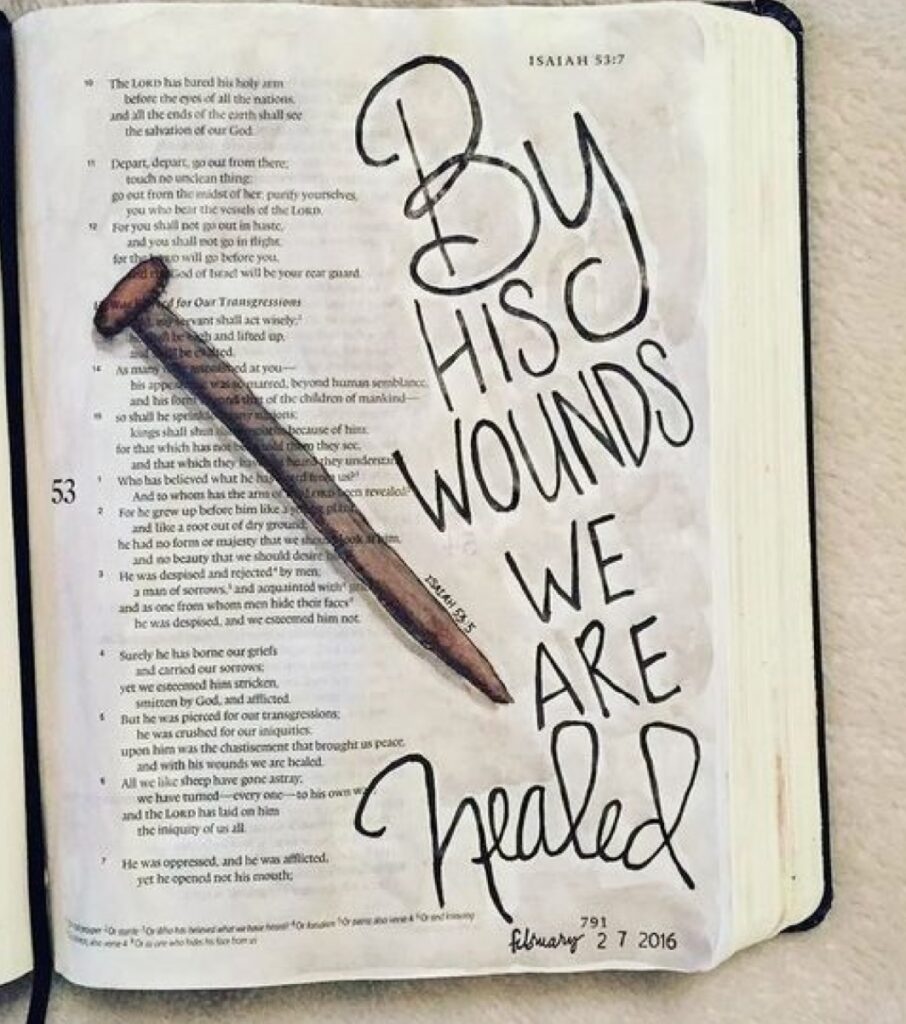 ISAIAH 53:7
10 The LORD has bared his holy arm
before the eyes of all the nations,
and all the ends of the earth shall see
the salvation of our God.
11 Depart, depart, go out from there;
touch no unclean thing;
go out from the midst of her; purify yourselves,
you who bear the vessels of the LORD.
12 For you shall not go out in haste,
and you shall not go in flight,
for the LORD will go before you,
and the God of Israel will be your rear guard.
for Our Transgressions
servant shall act wisely;
high and lifted up,
and shall be exalted.
14 As many were astonished at you—
his appearance was so marred, beyond human semblance,
and his form beyond that of the children of mankind—
15 so shall he sprinkle many nations;
kings shall shut their mouths because of him;
for that which has not been told them they see,
and that which they have not heard they understand.
53
1 Who has believed what he has heard from us?
And to whom has the arm of the LORD been revealed?
2 For he grew up before him like a young plant,
and like a root out of dry ground;
he had no form or majesty that we should look at him,
and no beauty that we should desire him.
3 He was despised and rejected by men;
a man of sorrows, and acquainted with grief;
and as one from whom men hide their faces
he was despised, and we esteemed him not.
4 Surely he has borne our griefs
and carried our sorrows;
yet we esteemed him stricken,
smitten by God, and afflicted.
5 But he was pierced for our transgressions;
he was crushed for our iniquities;
upon him was the chastisement that brought us peace,
and with his wounds we are healed.
6 All we like sheep have gone astray;
we have turned—every one—to his own
and the LORD has laid on him
the iniquity of us all.
7 He was oppressed, and he was afflicted,
yet he opened not his mouth;
By
HIS
WOUNDS
WE
ARE
Healed
ISAIAH 53:5
791
february 27 2016